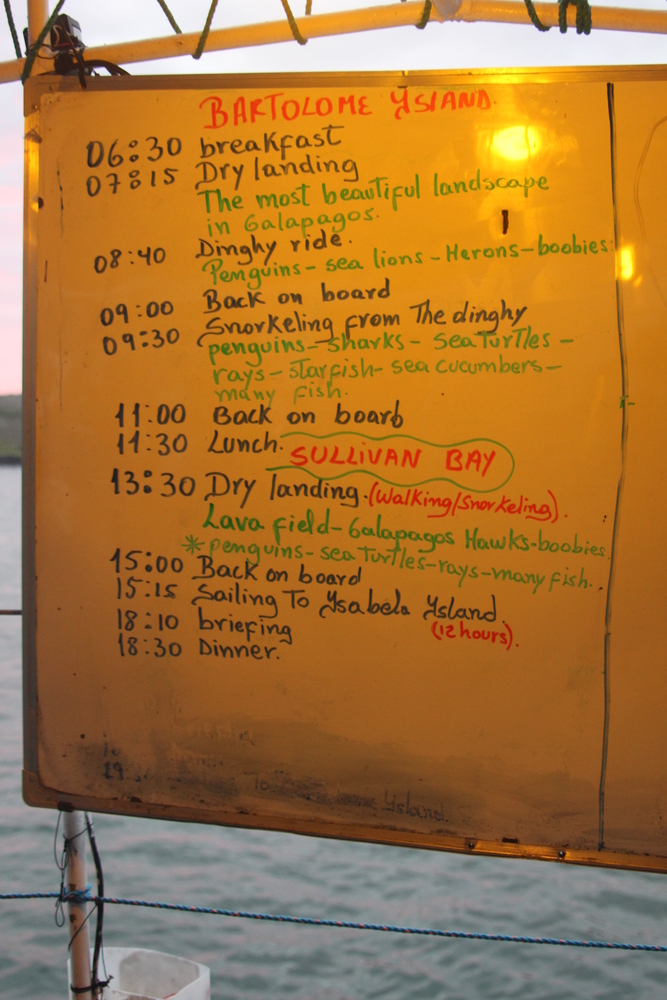 BARTOLOME YSLAND.
06:30 breakfast
07:15 Dry landing
The most beautiful landscape
in Galapagos.
08:40 Dinghy ride.
Penguins - sea lions - Herons - boobies.
09:00 Back on board
09:30 Snorkeling from The dinghy
penguins - sharks - sea Turtles -
rays - starfish - sea cucumbers -
many fish.
11:00 Back on board
11:30 Lunch.
SULLIVAN BAY
13:30 Dry landing. (Walking/Snorkeling).
Lava field - Galapagos Hawks - boobies.
* penguins - sea Turtles - rays - many fish.
15:00 Back on board
15:15 Sailing To Ysabela Ysland.
18:10 briefing (12 hours).
18:30 Dinner.
Ysland.